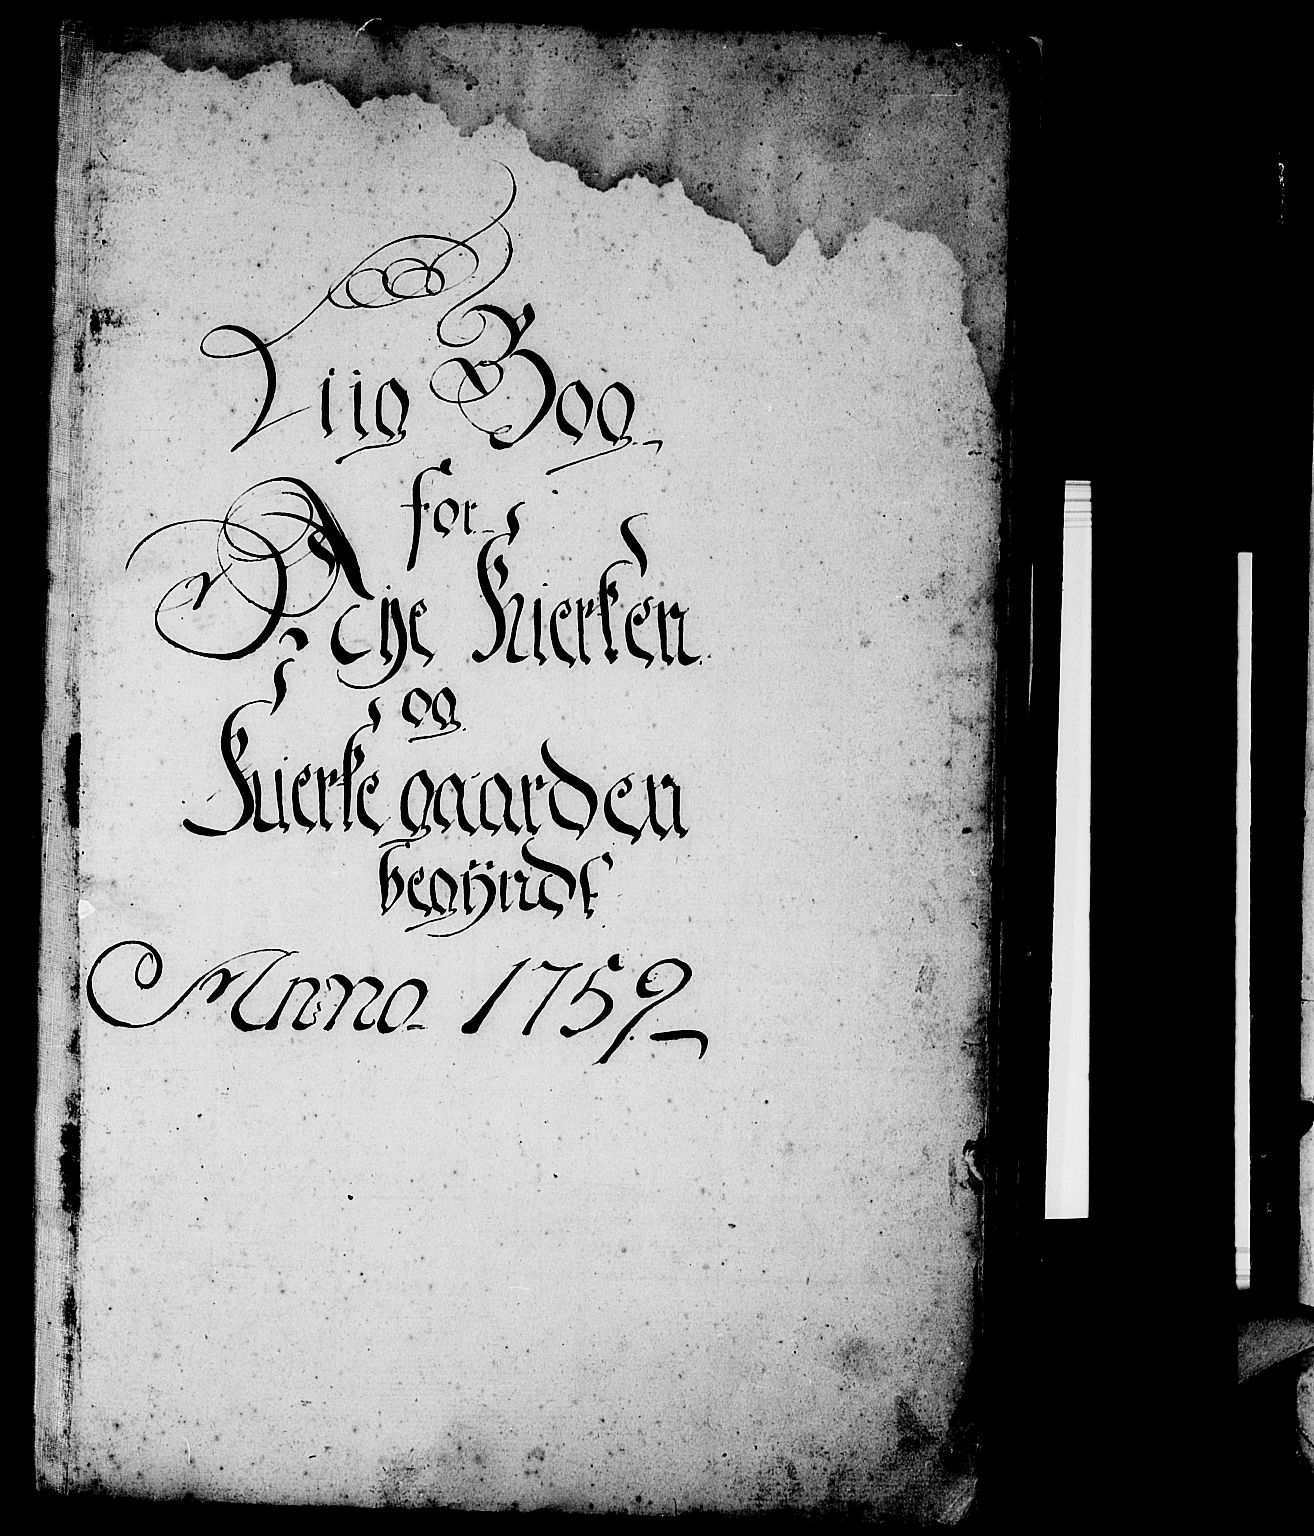 Liig Bog
for
Nye Kierken
og
Kierke gaarden
begÿndt
Anno 1759